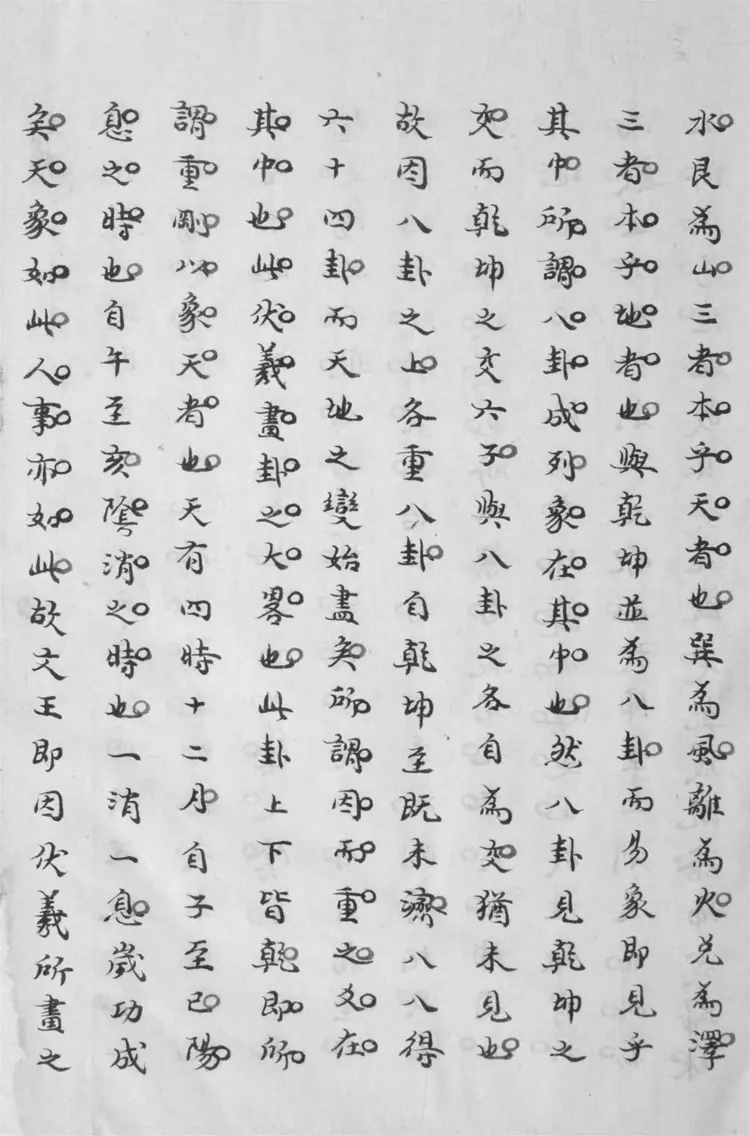 水艮為山三者本乎天者也巽為風離為火兌為澤
三者本乎地者也與乾坤並為八卦而易象即見乎
其中所謂八卦成列象在其中也然八卦見乾坤之
交而乾坤之交六子與八卦之各自為交猶未見也
故因八卦之上各重八卦自乾坤至既未濟八八得
六十四卦而天地之變始盡矣所謂因而重之爻在
其中也此伏羲畫卦之大畧也此卦上下皆乾即所
謂重剛以象天者也天有四時十二月自子至巳陽
息之時也自午至亥陰消之時也一消一息歲功成
矣天象如此人事亦如此故文王即因伏羲所畫之